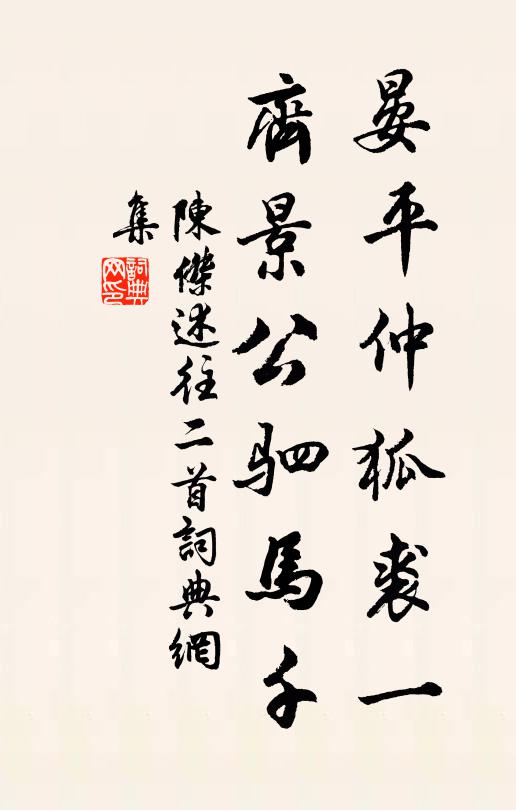 晏平仲狐裘一
齊景公駟馬千
陳傑述往二首詞典網
集
詞典
网印